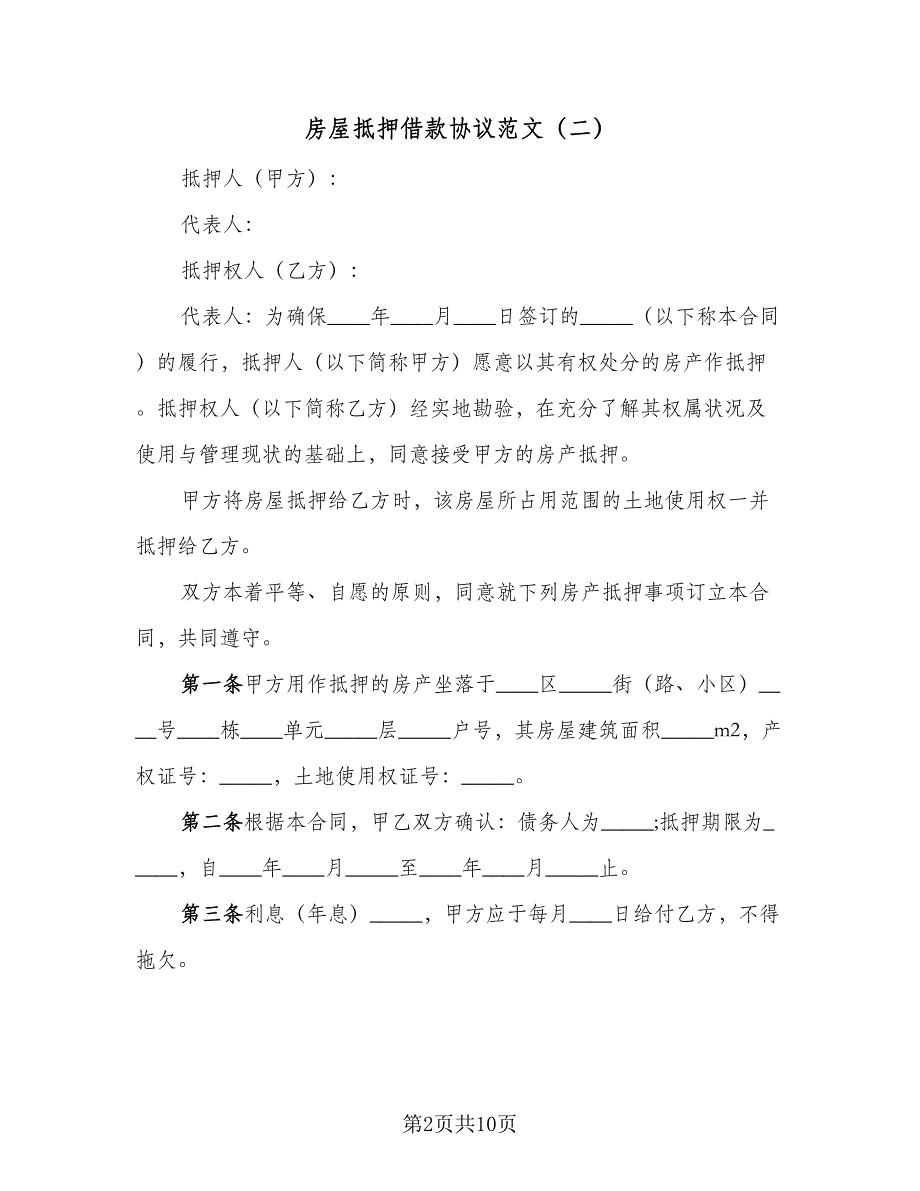 房屋抵押借款协议范文（二）
抵押人（甲方）：
代表人：
抵押权人（乙方）：
代表人：为确保____年____月____日签订的_____（以下称本合同
）的履行，抵押人（以下简称甲方）愿意以其有权处分的房产作抵押
。抵押权人（以下简称乙方）经实地勘验，在充分了解其权属状况及
使用与管理现状的基础上，同意接受甲方的房产抵押。
甲方将房屋抵押给乙方时，该房屋所占用范围的土地使用权一并
抵押给乙方。
双方本着平等、自愿的原则，同意就下列房产抵押事项订立本合
同，共同遵守。
第一条甲方用作抵押的房产坐落于____区_____街（路、小区）__
__号____栋____单元_____层_____户号，其房屋建筑面积_____m2，产
权证号：_____，土地使用权证号：_____。
第二条根据本合同，甲乙双方确认：债务人为_____;抵押期限为_
____，自____年____月_____至____年____月_____止。
第三条利息（年息）_____，甲方应于每月____日给付乙方，不得
拖欠。
第2页共10页